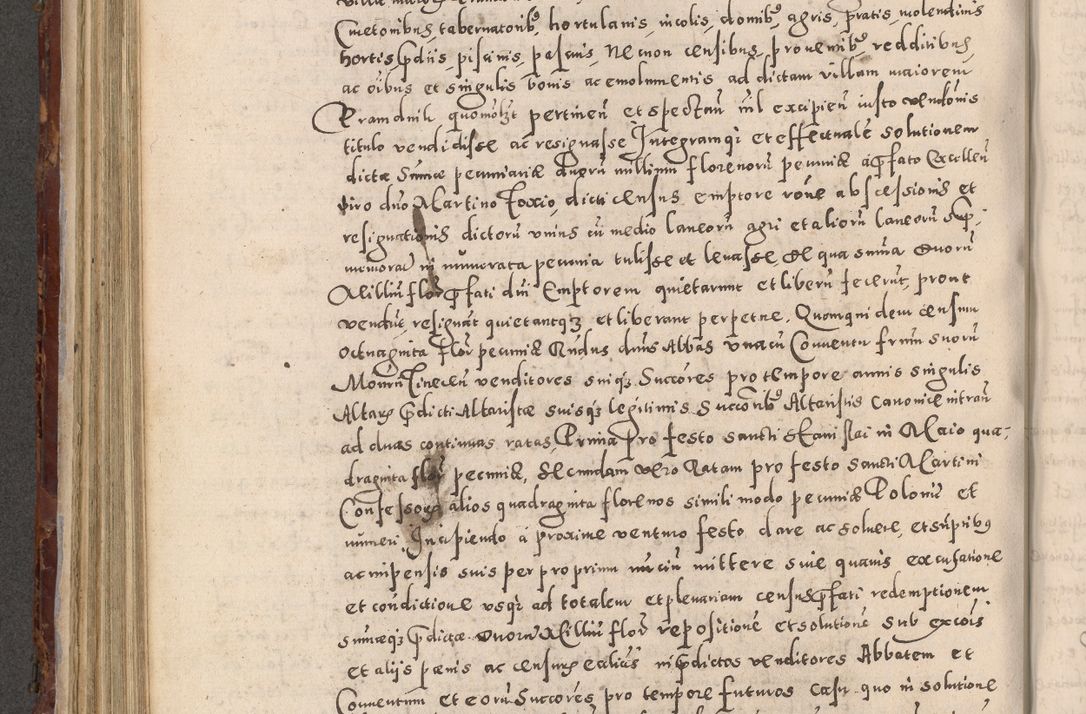 Cmetonibus tabernatorib9 hortulanis, incolis, domib9, agris, pratis, molendinis
hortis pdijs, piscinis, pascuis, Necnon censibus, prouentib9, redditibus,
ac oibus et singulis bonis ac emolumentis ad dictam villam maiorem
pertinen et spectan nil excipien iusto vendonis
titulo vendidisse ac resignasse Integramqz et effectuale solutionem
dictæ Summæ pecuniariæ duoru millium florenoru pecuniæ a pfato Excellen
viro dno Martino dicti census emptore rone abscessionis et
resignationis dictoru vnius cu medio laneoru agri et alioru laneoru sup
memorat in numerata pecunia tulisse et leuasse De qua suma duoru
Millium flor pfati dni Emptorem quietarunt et liberu fecerut, prout
vendut resignat quietantqz et liberant perpetue. Quomqui dem censum
Octuaginta flor pecuniæ dnus Abbas vnacu Conuentu frum suoru
venditores suiqz Succores pro tempore annis singulis
pdicti Altaristæ suisqz legitimis Succorib9 Altaristis canonice intran
ad duas continuas ratas, Prima pro festo sancti Stanislai in Maio qua-
draginta flor pecuniæ, Secundam vero Ratam pro festo Sancti Martini
Confessoris alios quadraginta florenos simili modo pecuniæ Poloniæ et
numeri, Incipiendo a proxime venturo festo dare ac soluere, et suptib9
ac impensis suis per proprium nuciu mittere sine quauis excusatione
et condictione vsqz ad totalem et plenariam census pfati redemptionem
sumæqz pdictæ duoru Milliu flor repositione et solutione Sub excois
et alijs pænis ac censuris in pdictos venditores Abbatem et
Conuentum et eoru Succores pro tempore futuros casu quo in solutione